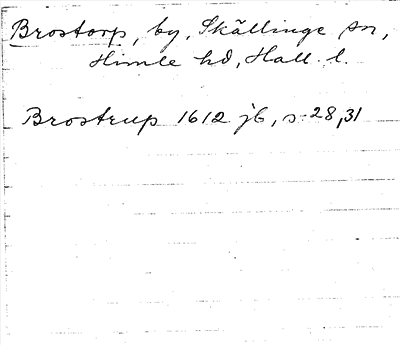 Brostorp, by, Skällinge sn,
Himle hd, Hall. l.
Brostrup 1612 jb, s. 28, 31